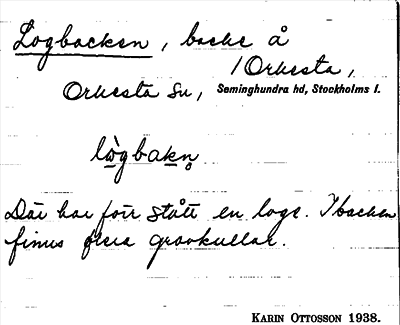 Logbacken, backe å
/Orkesta,
Orkesta sn, Seminghundra hd, Stockholms l.
lo̠̊̀gbak̠n̥
Där har förr stått en loge. I backen
finns flera gravkullar.
KARIN OTTOSSON 1938.